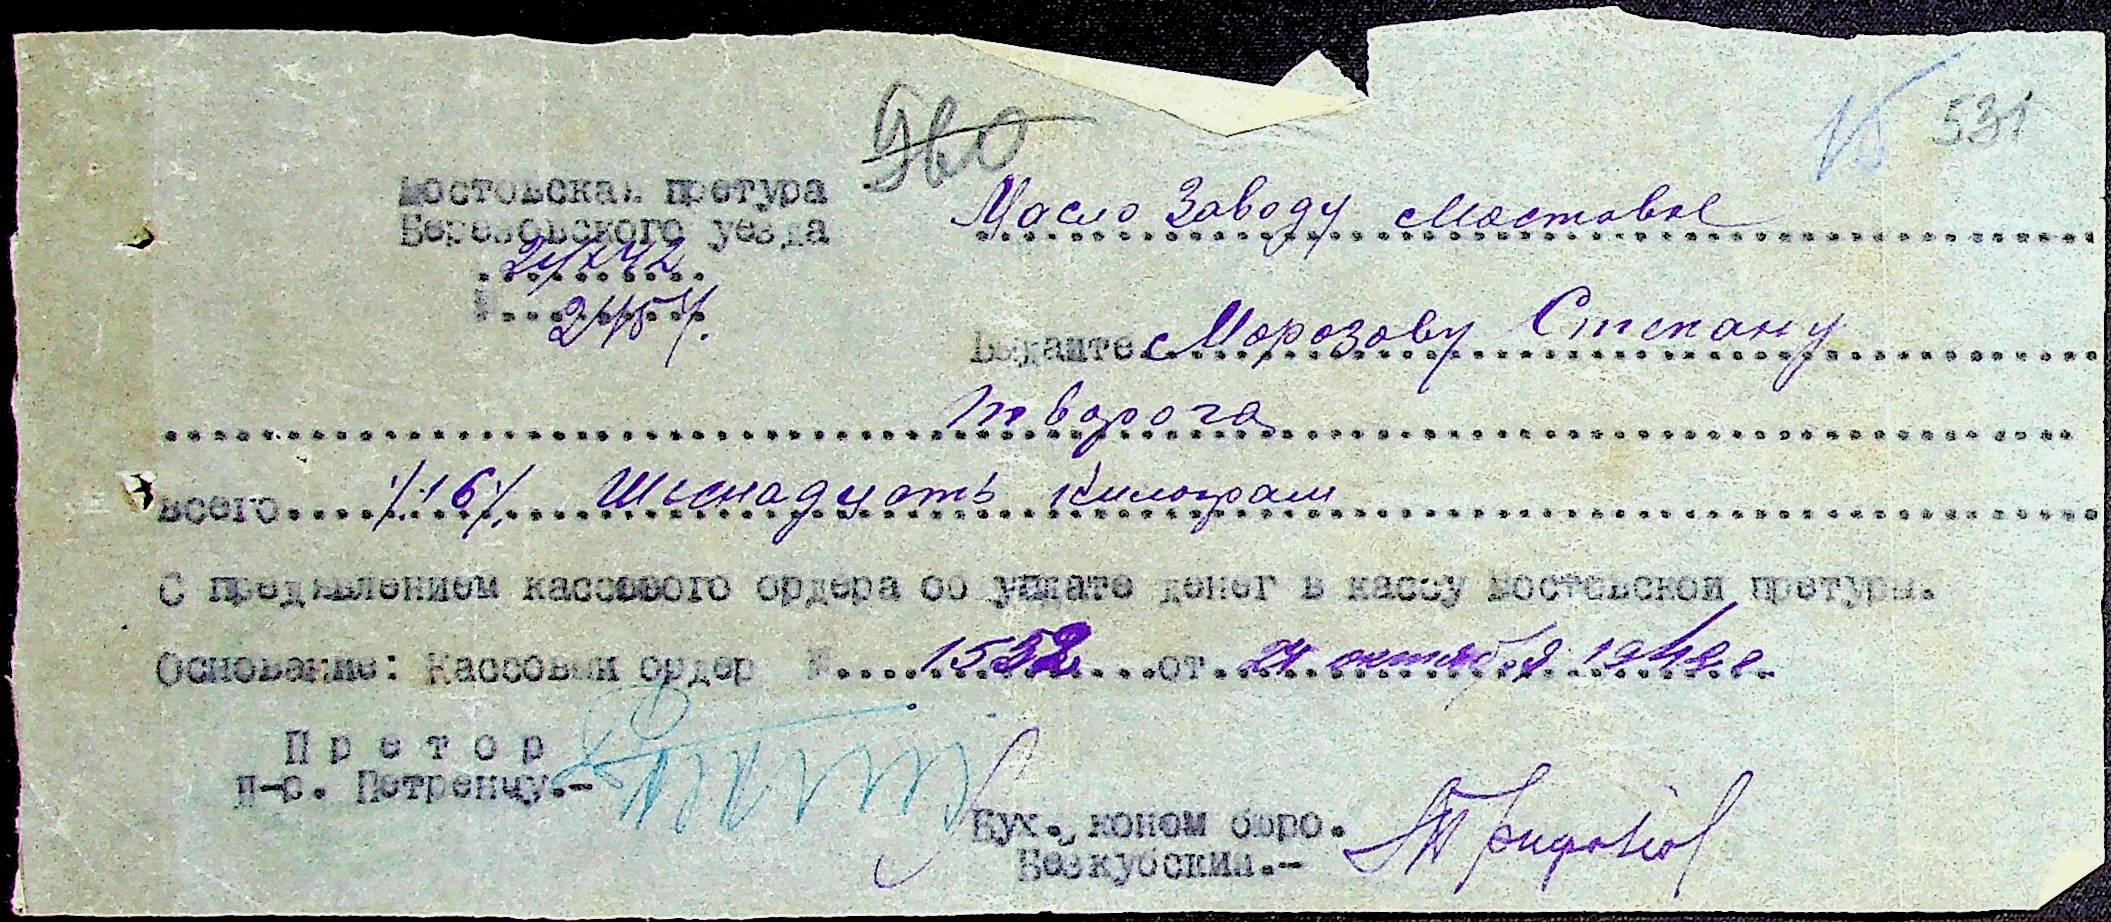 531
Мостовская претура
Березовского уезда
Масло Заводу Мостовое
24/X 42
№ 2454.
Выдайте Морозову Степану
творога
Всего /16/. Шеснадцать килограм
С предъявлением кассового ордера об уплате денег в кассу Мостовской претуры.
Основание: Кассовый ордер № 1532 от 24 октября 1942 г.
Претор
п-р. Петренчу.-
Бух. коном бюро.
Безкубский.-